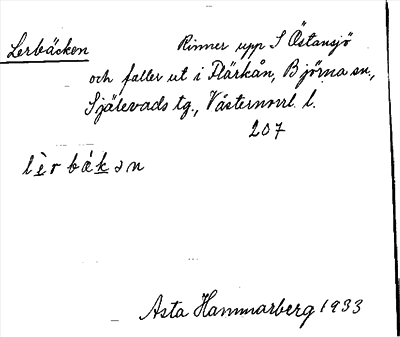 Lerbäcken Rinner upp S Östansjö
och faller ut i Flärkån, Björna sn.,
Själevads tg., Västernorrl. l.
207
lèrbák̲ən
Asta Hammarberg 1933